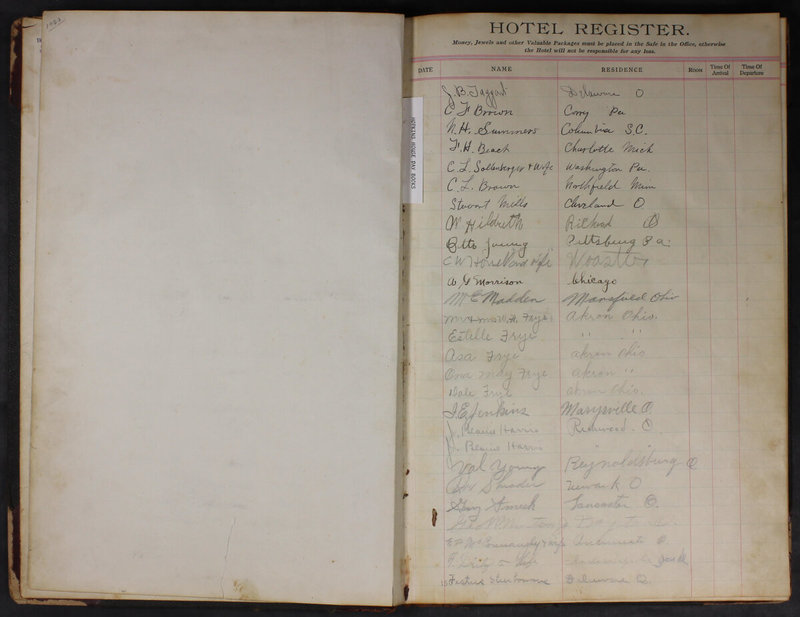 1903
HOTEL REGISTER.
Money, Jewels and other Valuable Packages must be placed in the Safe in the Office, otherwise
the Hotel will not be responsible for any loss.
DATE NAME RESIDENCE Room Time Of Arrival Time Of Departure
HOPKINS HOUSE DAY BOOKS
J. B. Taggart Delaware O
C F Brown Corry Pa
W. H. Summers Columbia S.C.
F. H. Beach Charlotte Mich
C. L. Sollenberger & Wife Washington Pa.
C. L. Brown Northfield Minn
Stuart Mills Cleveland O
W Hildreth
Otto Young Pittsburg Pa.
C W & wife Wooster
W G Morrison Chicago
M C Madden Mansfield Ohio
Mr & Mrs W. A. Frye Akron Ohio.
Estelle Frye " "
Asa Frye akron Ohio
Ona May Frye akron "
Dale Frye akron Ohio.
J. E. Jenkins Marysville O.
J. Harris Richwood. O
J. Harris "
Val Young Reynoldsburg O
Shrader Newark O
Lancaster O.
E P & wife Cincinnati O.
& wife
Delaware O.